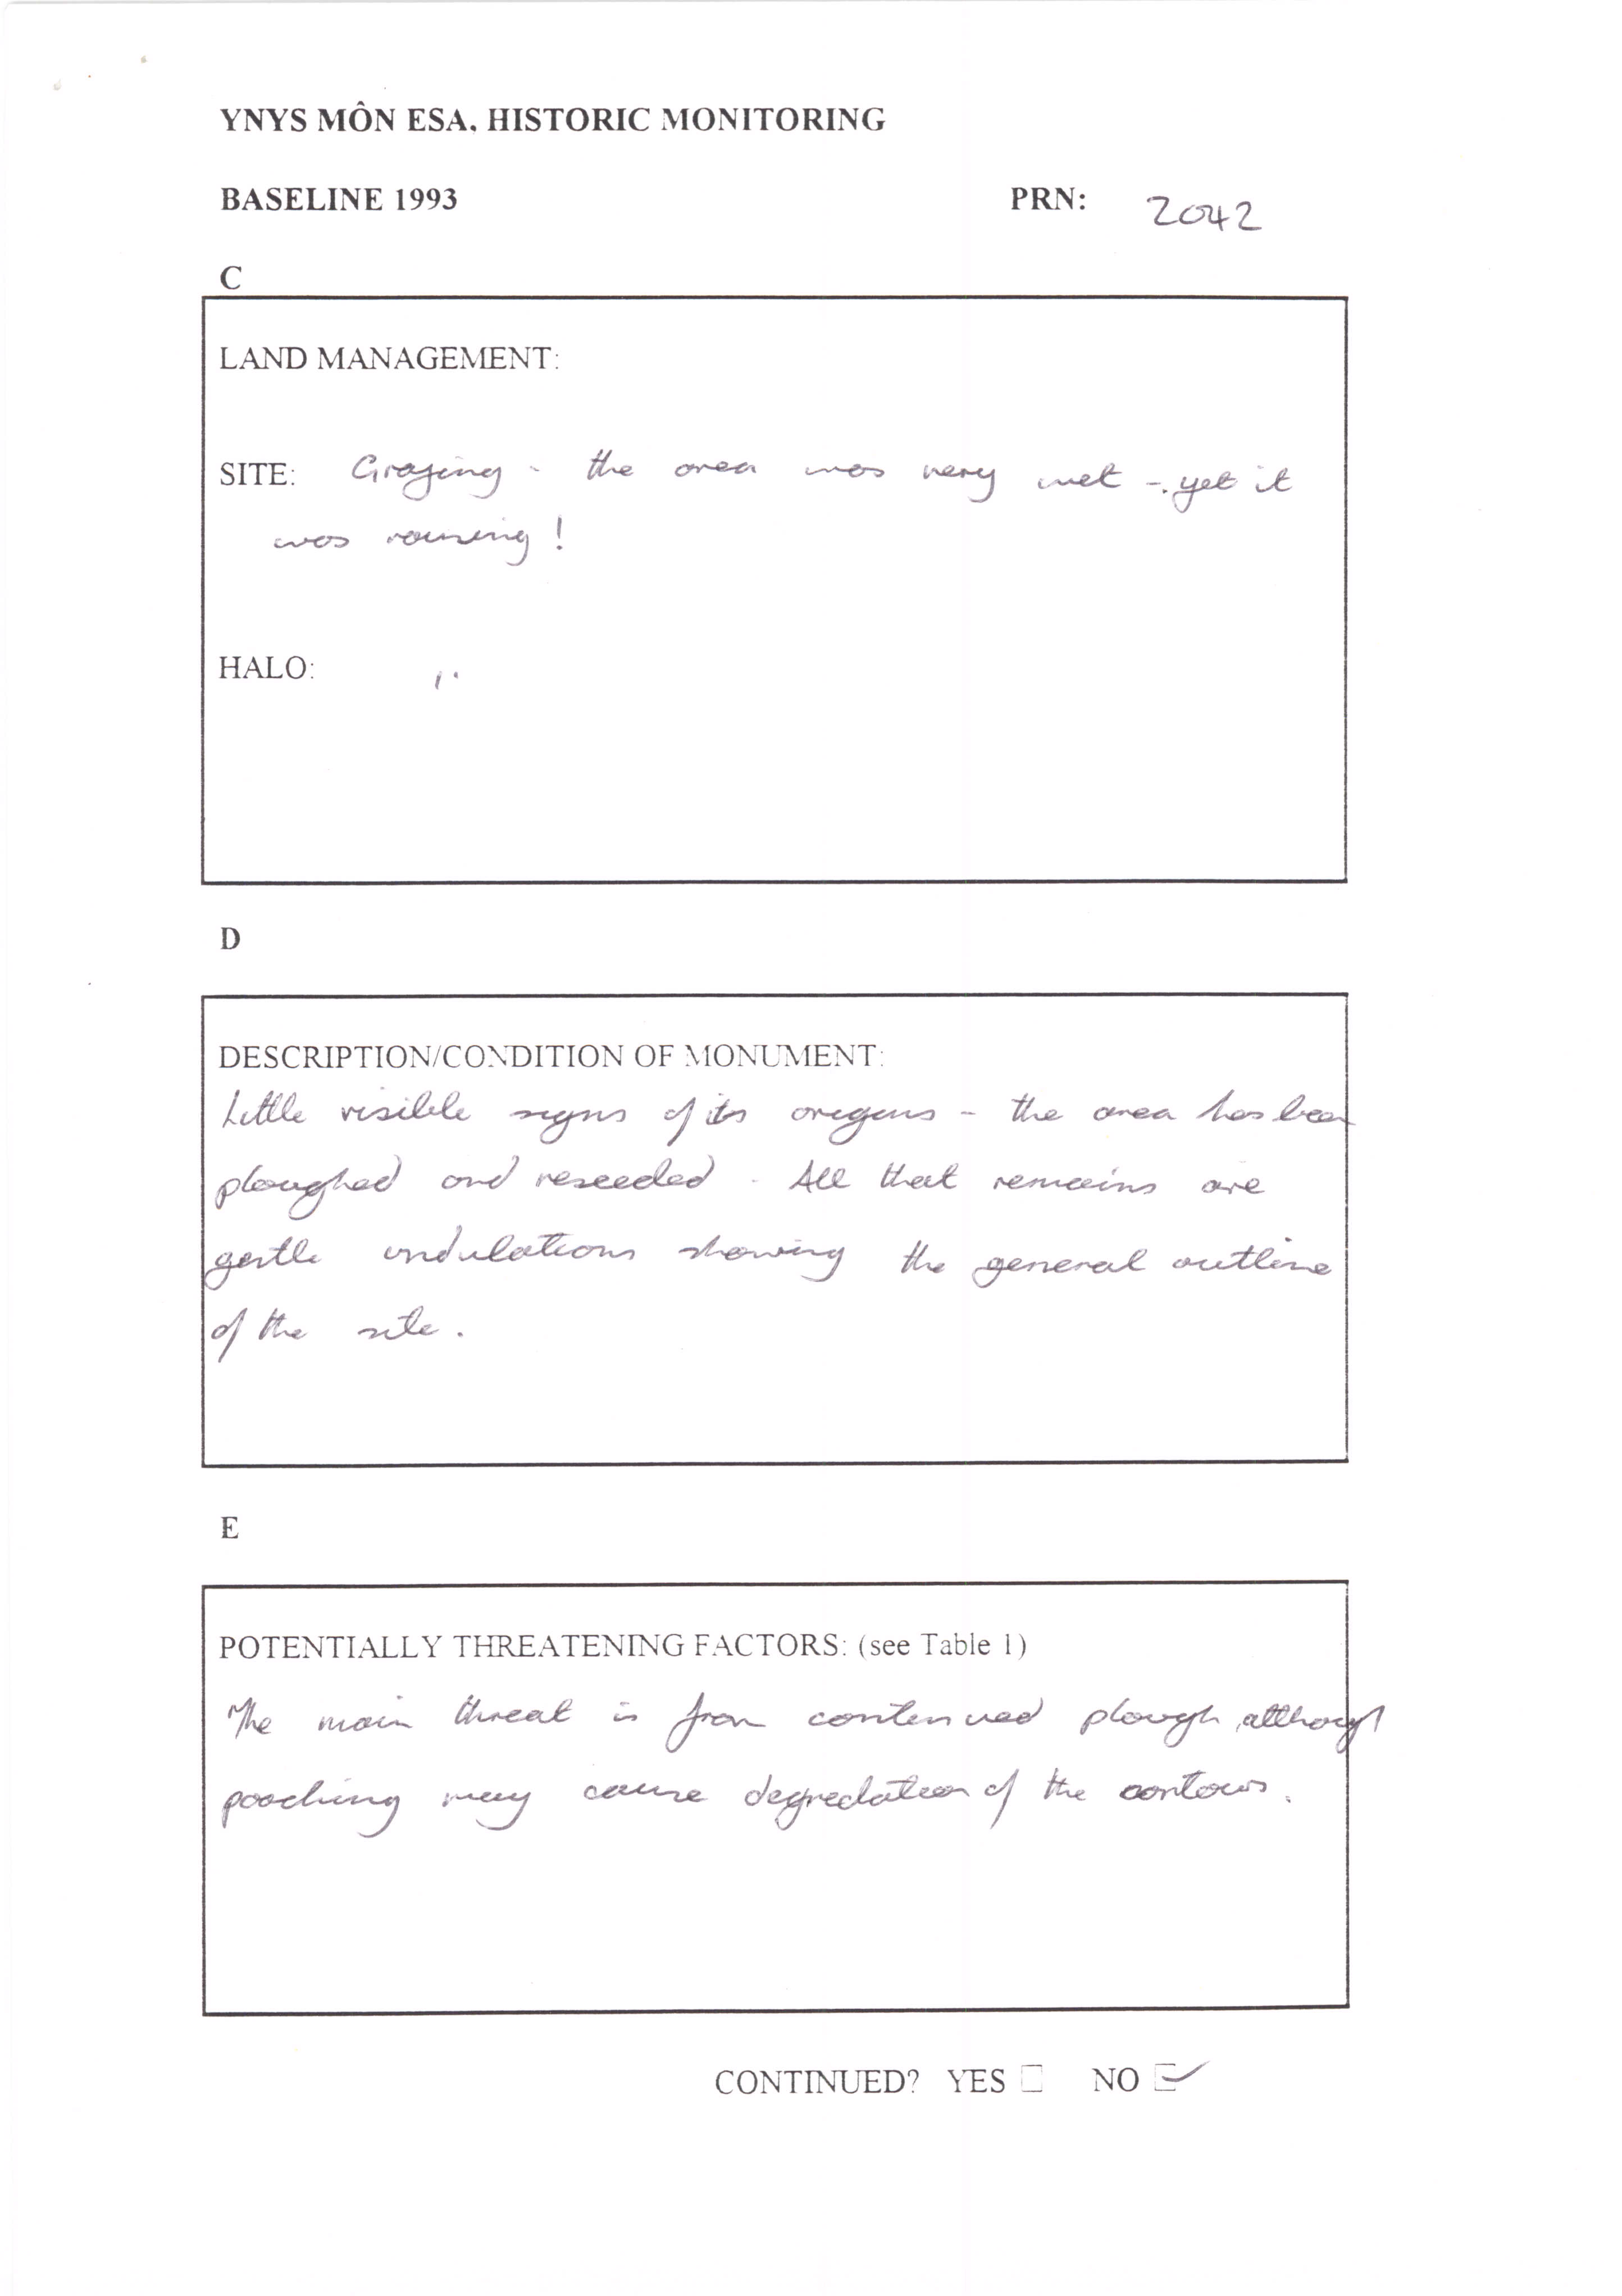 YNYS MÔN ESA. HISTORIC MONITORING
BASELINE 1993 PRN: 2042
C
LAND MANAGEMENT:
SITE: Grazing - the area was very wet - yet it
was raining!
HALO: "
D
DESCRIPTION/CONDITION OF MONUMENT:
Little visible signs of its origens - the area has been
ploughed and reseeded. All that remains are
gentle undulations showing the general outline
of the site.
E
POTENTIALLY THREATENING FACTORS: (see Table 1)
The main threat is from continued plough, although
poaching may cause degredation of the contours.
CONTINUED? YES NO ✓